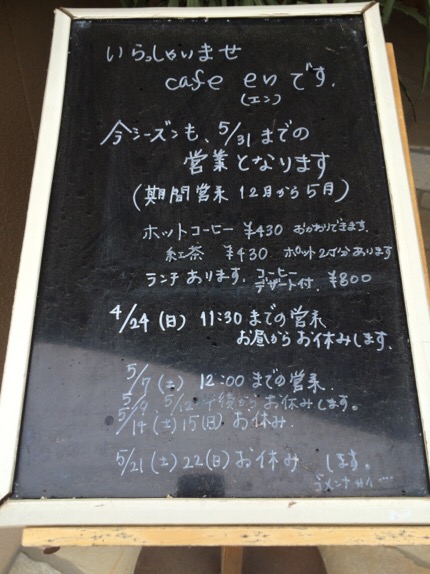 いらっしゃいませ
cafe en です.
(エン)
今シーズンも、5/31までの
営業となります
(期間営業 12月から5月)
ホットコーヒー ¥430 おかわりできます.
紅茶 ¥430 ポット2杯分あります
ランチあります. コーヒー デザート付. ¥800
4/24(日) 11:30までの営業
お昼からお休みします.
5/7(土) 12:00までの営業.
5/9. 5/12 午後からお休みします。
5/14(土)15(日)お休み.
5/21(土)22(日)お休み します。
ゴメンナサイ…